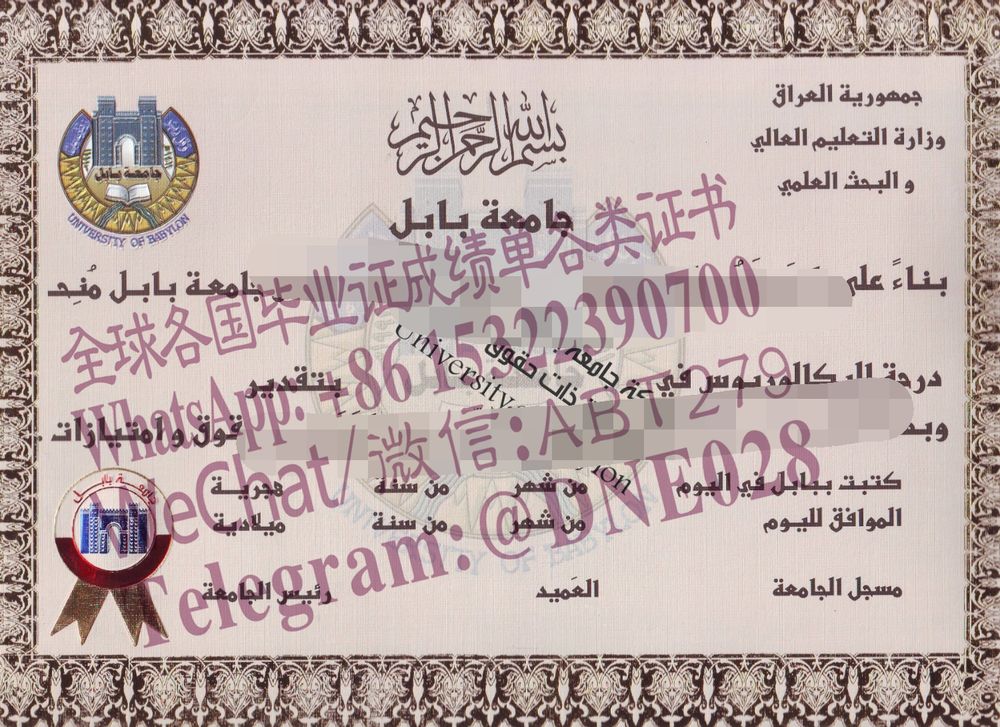 جمهورية العراق
وزارة التعليم العالي
و البحث العلمي
بسم الله الرحمن الرحيم
جامعة بابل
UNIVERSITY OF BABYLON
جامعة بابل
بناءً على
جامعة بابل
درجة البكالوريوس في
بتقدير
وامتيازات
University
ذات حقوق
جامعة
كتبت ببابل في اليوم من شهر من سنة هجرية
الموافق لليوم من شهر من سنة ميلادية
مسجل الجامعة العَميد رئيس الجامعة
جامعة بابل
UNIVERSITY OF BABYLON
全球各国毕业证成绩单各类证书
WhatsApp: +86 15322390700
WeChat/微信:ABT279
Telegram: @DNE028